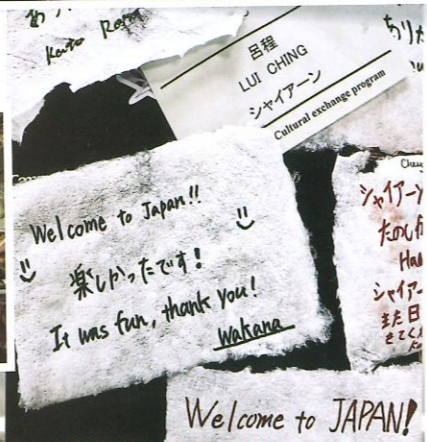 Kato
呂程
LUI CHING
シャイアーン
Cultural exchange program
Welcome to Japan!!
楽しかったです!
It was fun, thank you!
Wakana
シャイアーン
シャイアー
また日
Welcome to JAPAN!